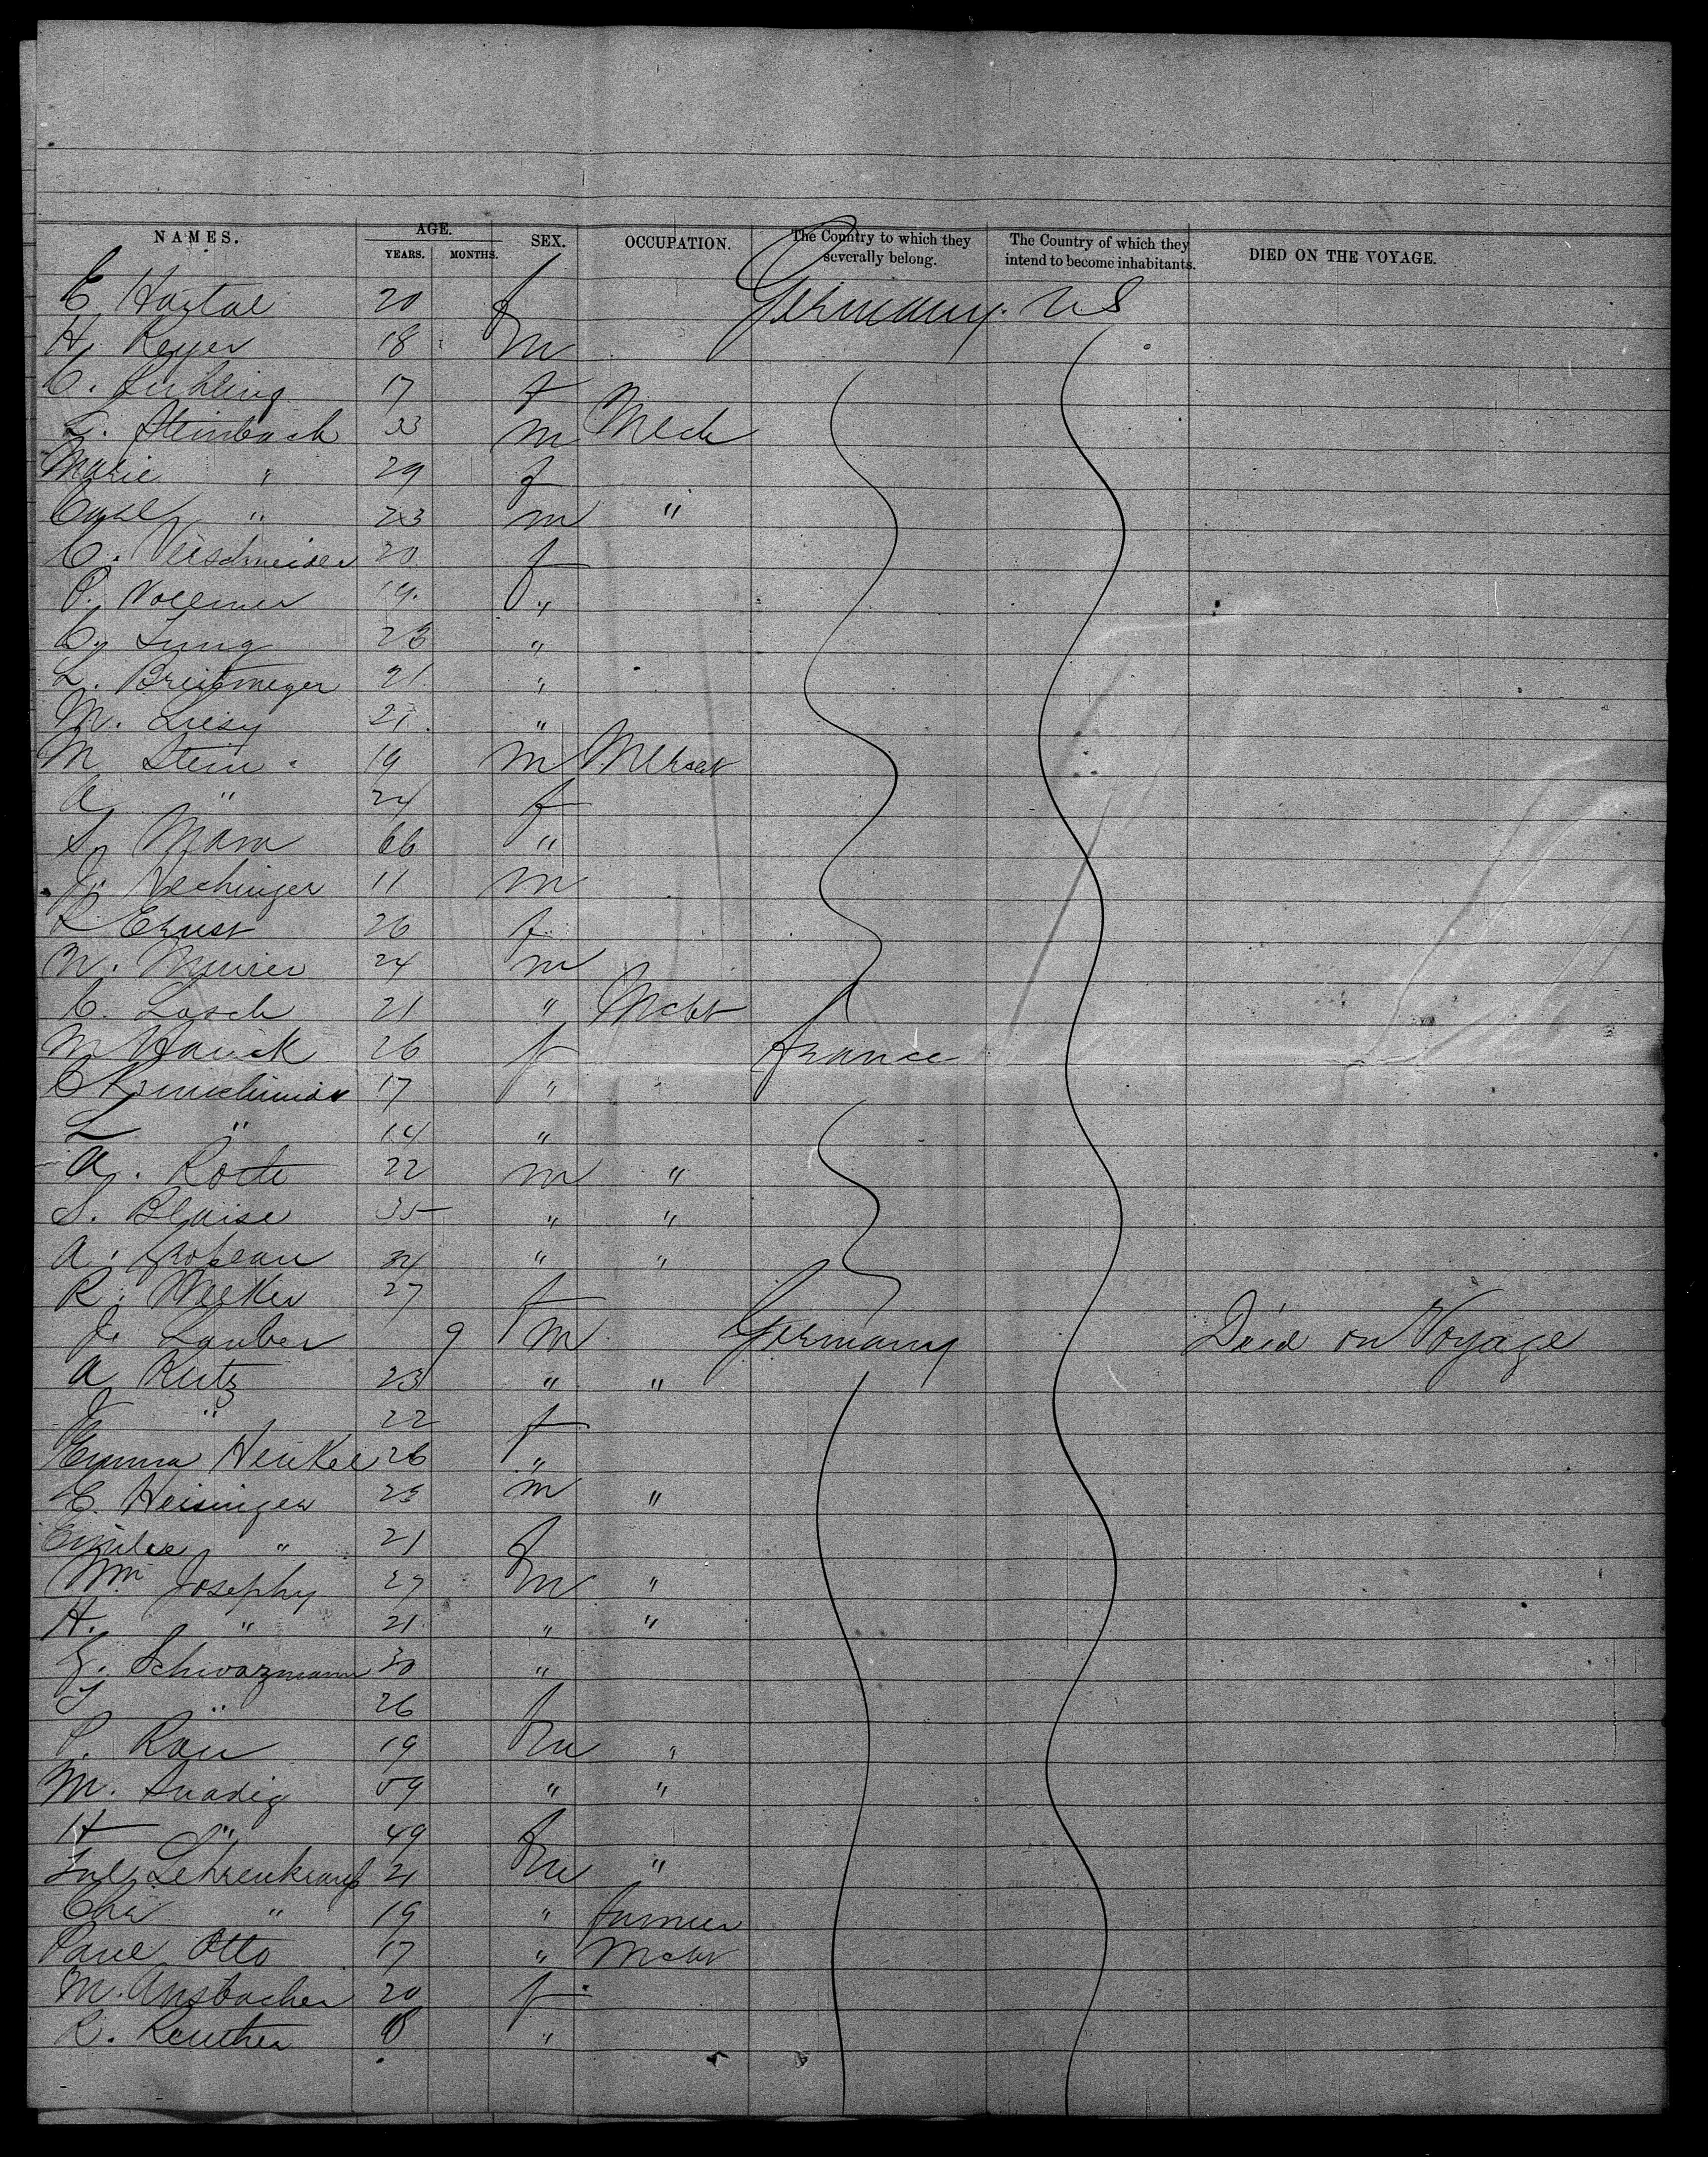 NAMES. AGE. SEX. OCCUPATION. The Country to which they severally belong. The Country of which they intend to become inhabitants. DIED ON THE VOYAGE.
YEARS. MONTHS.
E Hartal 20 f Germany. U S
H. Reyer 18 m
C. 17 f
Steinbach 33 m Mech
Marie " 29 f
Carl " 23 m "
C. Verschneider 20 f
P. Vollmer 19. "
C. Jung 23 "
L. Breitmeyer 21 "
M. Liesy 21. "
M Stein 19 m
A " 24 f
S. Mara 66 "
J. Hechinger 11 m
L Ernst 26 f
N. 24 m
C. Losch 21 " Mcht
M Hauck 26 f France
C 17 "
L " 14 "
A. Rode 22 m "
S. Blaise 35 " "
A. 34 " "
R. Welker 27 f
J. Lauber 9 m Germany Died on Voyage
A Rutz 23 " "
J " 22 f
Emma Henkel 26 "
E. Heisinger 25 m "
Emilie " 21 f
Wm Josephy 27 m "
H. " 21. " "
G. Schwarzmann 30 "
" 26 f
P. Rau 19 m "
M. 59 " "
H " 49 f
Lehrenkrauss 21 m "
Chr " 19 " farmer
Paul Otto 17 " Mcht
M. Ansbacher 20 f
R. Reuther 18 "